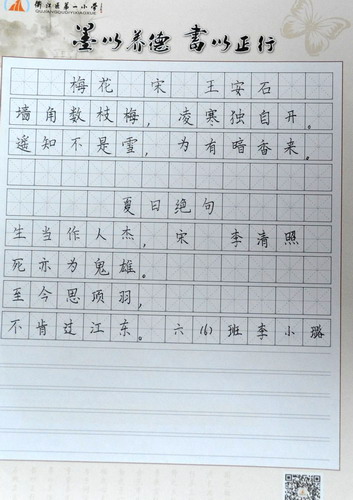 衢江区第一小学
QUJIANGQUDIYIXIAOXUE
墨以养德 書以正行
梅花 宋 王安石
墙角数枝梅，凌寒独自开。
遥知不是雪，为有暗香来。
夏日绝句
生当作人杰，宋 李清照
死亦为鬼雄。
至今思项羽，
不肯过江东。 六(6)班李小璐